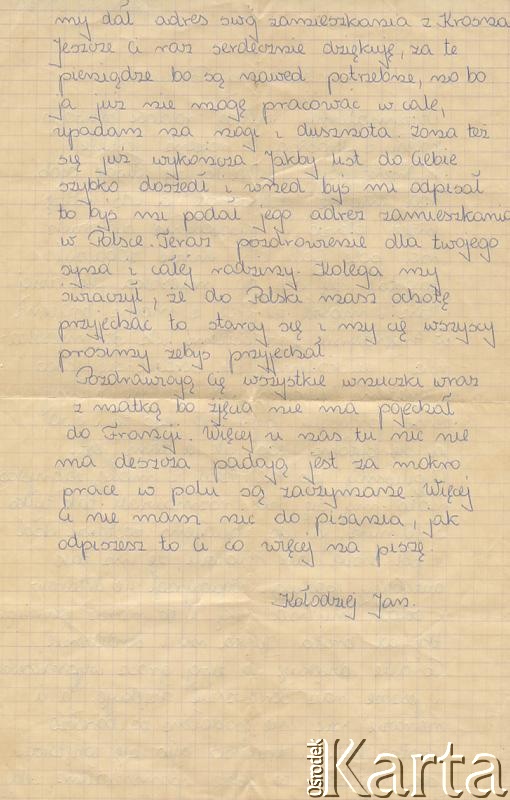 my dał adres swój zamieszkania z Krosna
Jeszcze Ci raz serdecznie dziękuję, za te
pieniądze bo są nawed potrzebne, no bo
ja już nie mogę pracować w cale,
upadam na nogi i dusznota. żona też
się już wykończa. Jakby list do Ciebie
szybko doszedł i wned byś mi odpisał
to byś mi podał jego adrez zamieszkania
w Polsce. Teraz pozdrowienie dla twojego
syna i całej rodziny. Kolega my
świaczył, że do Polski masz ochotę
przyjechać to staraj się i my cię wszyscy
prosimy żebyś przyjechał
Pozdrawiają cię wszystkie wnuczki wraz
z matką bo zięcia nie ma pojechał
do Francji. Więcej u nas tu nic nie
ma deszcza padają jest za mokro
prace w polu są zaczymane. Więcej
Ci nie mam nic do pisania, jak
odpiszesz to Ci co więcej na piszę.
Kołodziej Jan.
Ośrodek Karta